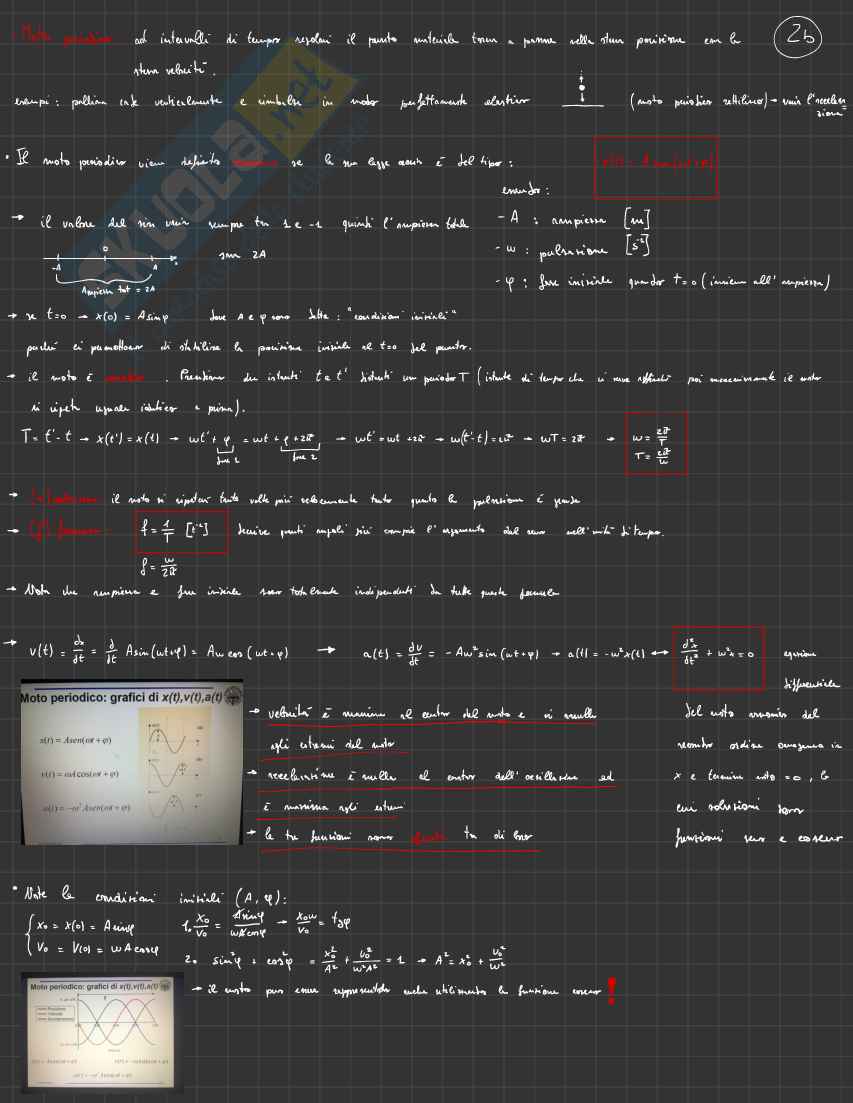 • Moto periodico ad intervalli di tempo regolari il punto materiale torna a passare nella stessa posizione con la
2b
stessa velocità.
esempi: pallina cade verticalmente e rimbalza in modo perfettamente elastico (moto periodico rettilineo) → varia l'accelerazione
• Il moto periodico viene definito armonico se la sua legge oraria è del tipo: x(t) = A sin(ωt+φ)
essendo:
→ il valore del sin varia sempre tra 1 e -1 quindi l'ampiezza totale
sarà 2A
- A : ampiezza [m]
- ω : pulsazione [s⁻¹]
- φ : fase iniziale quando t=0 (insieme all'ampiezza)
-A 0 A x
Ampiezza tot = 2A
→ se t=0 → x(0) = A sinφ dove A e φ sono dette: "condizioni iniziali"
perché ci permettono di stabilire la posizione iniziale al t=0 del punto.
→ il moto è . Prendiamo due istanti t e t' distanti un periodo T (istante di tempo che ci vuole poi il moto
si ripeta uguale identico a prima).
T = t' - t → x(t') = x(t) → ωt' + φ = ωt + φ + 2π → ωt' = ωt + 2π → ω(t'-t) = 2π → ωT = 2π → ω = 2π/T
T = 2π/ω
fase 1 fase 2
→ (ω) pulsazione: il moto si ripeterà tanto volte più velocemente tanto quanto la pulsazione è grande
→ (f) frequenza: f = 1/T [s⁻¹] descrive quanti angoli giri compie l'argomento del seno nell'unità di tempo.
f = ω/2π
→ Nota che ampiezza e fase iniziale sono totalmente indipendenti da tutte queste formule
→ v(t) = dx/dt = d/dt A sin(ωt+φ) = Aω cos(ωt+φ) → a(t) = dv/dt = -Aω² sin(ωt+φ) → a(t) = -ω²x(t) ↔ d²x/dt² + ω²x = 0 equazione
differenziale
del moto armonico del
secondo ordine omogenea in
x e termine noto = 0, le
cui soluzioni sono
funzioni seno e coseno
Moto periodico: grafici di x(t),v(t),a(t)
x(t) = Asen(ωt + φ)
v(t) = ωA cos(ωt + φ)
a(t) = −ω²Asen(ωt + φ)
→ velocità è massima al centro del moto e si annulla
agli estremi del moto
→ accelerazione è nulla al centro dell'oscillazione ed
è massima agli estremi
→ le tre funzioni sono sfasate tra di loro
• Note le condizioni iniziali (A, φ):
x₀ = x(0) = A sinφ
v₀ = v(0) = ωA cosφ
1. x₀/v₀ = A sinφ/ωA cosφ → x₀ω/v₀ = tgφ
2. sin²φ + cos²φ = x₀²/A² + v₀²/ω²A² = 1 → A² = x₀² + v₀²/ω²
→ il moto può essere rappresentato anche utilizzando la funzione coseno !
Moto periodico: grafici di x(t),v(t),a(t)
SKUOLA.net